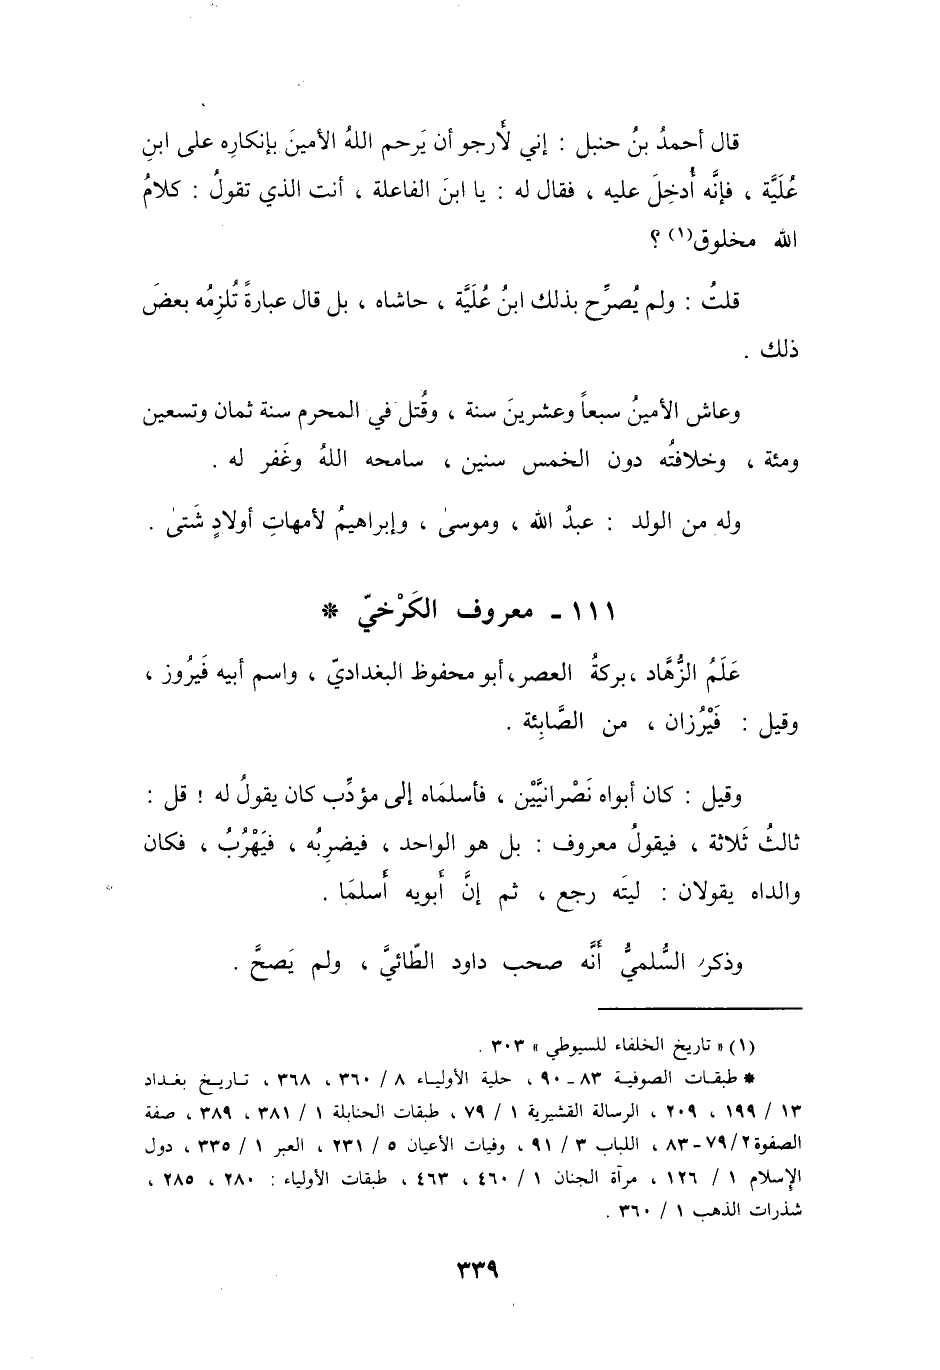 قال أحمدُ بنُ حنبل : إني لَأرجو أن يَرحم اللهُ الأمينَ بإنكارِه على ابنِ
عُلَيَّة ، فإنَّه أُدخِلَ عليه ، فقال له : يا ابنَ الفاعلة ، أنت الذي تقولُ : كلامُ
الله مخلوق(١) ؟
قلتُ : ولم يُصرِّح بذلك ابنُ عُلَيَّة ، حاشاه ، بل قال عبارةً تُلزِمُه بعضَ
ذلك .
وعاش الأمينُ سبعاً وعشرينَ سنة ، وقُتل في المحرم سنة ثمان وتسعين
ومئة ، وخلافتُه دون الخمس سنين ، سامحه اللهُ وغَفر له .
وله من الولد : عبدُ الله ، وموسىٰ ، وإبراهيمُ لأمهاتِ أولادٍ شَتىٰ .
١١١ - معروف الكَرْخيّ *
عَلَمُ الزُّهَّاد ، بركةُ العصر ، أبو محفوظ البغداديّ ، واسم أبيه فَيرُوز ،
وقيل : فَيْرُزان ، من الصَّابِئة .
وقيل : كان أبواه نَصْرانيَّيْن ، فأسلمَاه إلى مؤدِّب كان يقولُ له ! قل :
ثالثُ ثَلاثة ، فيقولُ معروف : بل هو الواحد ، فيضرِبُه ، فيَهْرُبُ ، فكان
والداه يقولان : ليتَه رجع ، ثم إنَّ أَبويه أَسلمَا .
وذكر السُّلميُّ أنَّه صحب داود الطّائيَّ ، ولم يَصحَّ .
(١) « تاريخ الخلفاء للسيوطي » ٣٠٣ .
* طبقات الصوفية ٨٣ - ٩٠ ، حلية الأولياء ٨ / ٣٦٠ ، ٣٦٨ ، تاريخ بغداد
١٣ / ١٩٩ ، ٢٠٩ ، الرسالة القشيرية ١ / ٧٩ ، طبقات الحنابلة ١ / ٣٨١ ، ٣٨٩ ، صفة
الصفوة ٢/ ٧٩ - ٨٣ ، اللباب ٣ / ٩١ ، وفيات الأعيان ٥ / ٢٣١ ، العبر ١ / ٣٣٥ ، دول
الإسلام ١ / ١٢٦ ، مرآة الجنان ١ / ٤٦٠ ، ٤٦٣ ، طبقات الأولياء : ٢٨٠ ، ٢٨٥ ،
شذرات الذهب ١ / ٣٦٠ .
٣٣٩